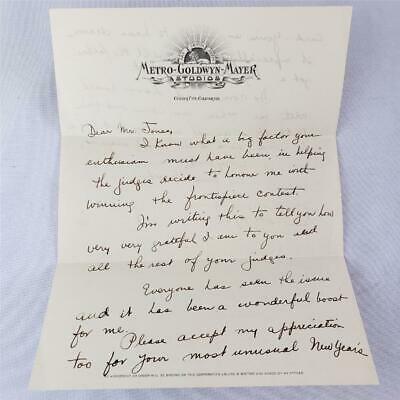 METRO-GOLDWYN-MAYER
STUDIOS
CULVER CITY, CALIFORNIA
Dear Mr. Jones,
I know what a big factor your
enthusiasm must have been in helping
the judges decide to honour me with
winning the frontispiece contest.
I'm writing this to tell you how
very very grateful I am to you and
all the rest of your judges.
Everyone has seen the issue
and it has been a wonderful boost
for me.
Please accept my appreciation
too for your most unusual New Year's
NO AGREEMENT OR ORDER WILL BE BINDING ON THIS CORPORATION UNLESS IN WRITING AND SIGNED BY AN OFFICER